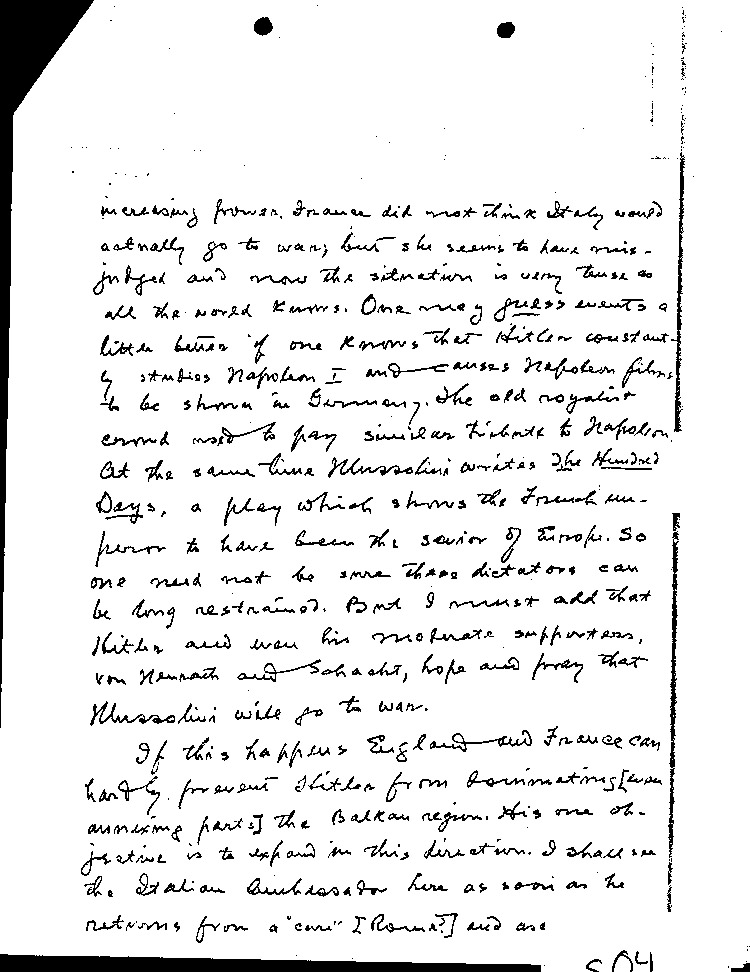 increasing power. France did not think Italy would
actually go to war; but she seems to have mis-
judged and now the situation is very tense as
all the world knows. One may guess events a
little better if one knows that Hitler constant-
ly studies Napoleon I and causes Napoleon films
to be shown in Germany. The old royalist
crowd used to pay similar tribute to Napoleon.
At the same time Mussolini writes The Hundred
Days, a play which shows the French em-
peror to have been the savior of Europe. So
one need not be sure these dictators can
be long restrained. But I must add that
Hitler and even his moderate supporters,
von Neurath and Schacht, hope and pray that
Mussolini will go to war.
If this happens England and France can
hardly prevent Hitler from dominating [even
annexing parts] the Balkan region. His one ob-
jective is to expand in this direction. I shall see
the Italian Ambassador here as soon as he
returns from a "cure" [Rome?] and ask
504